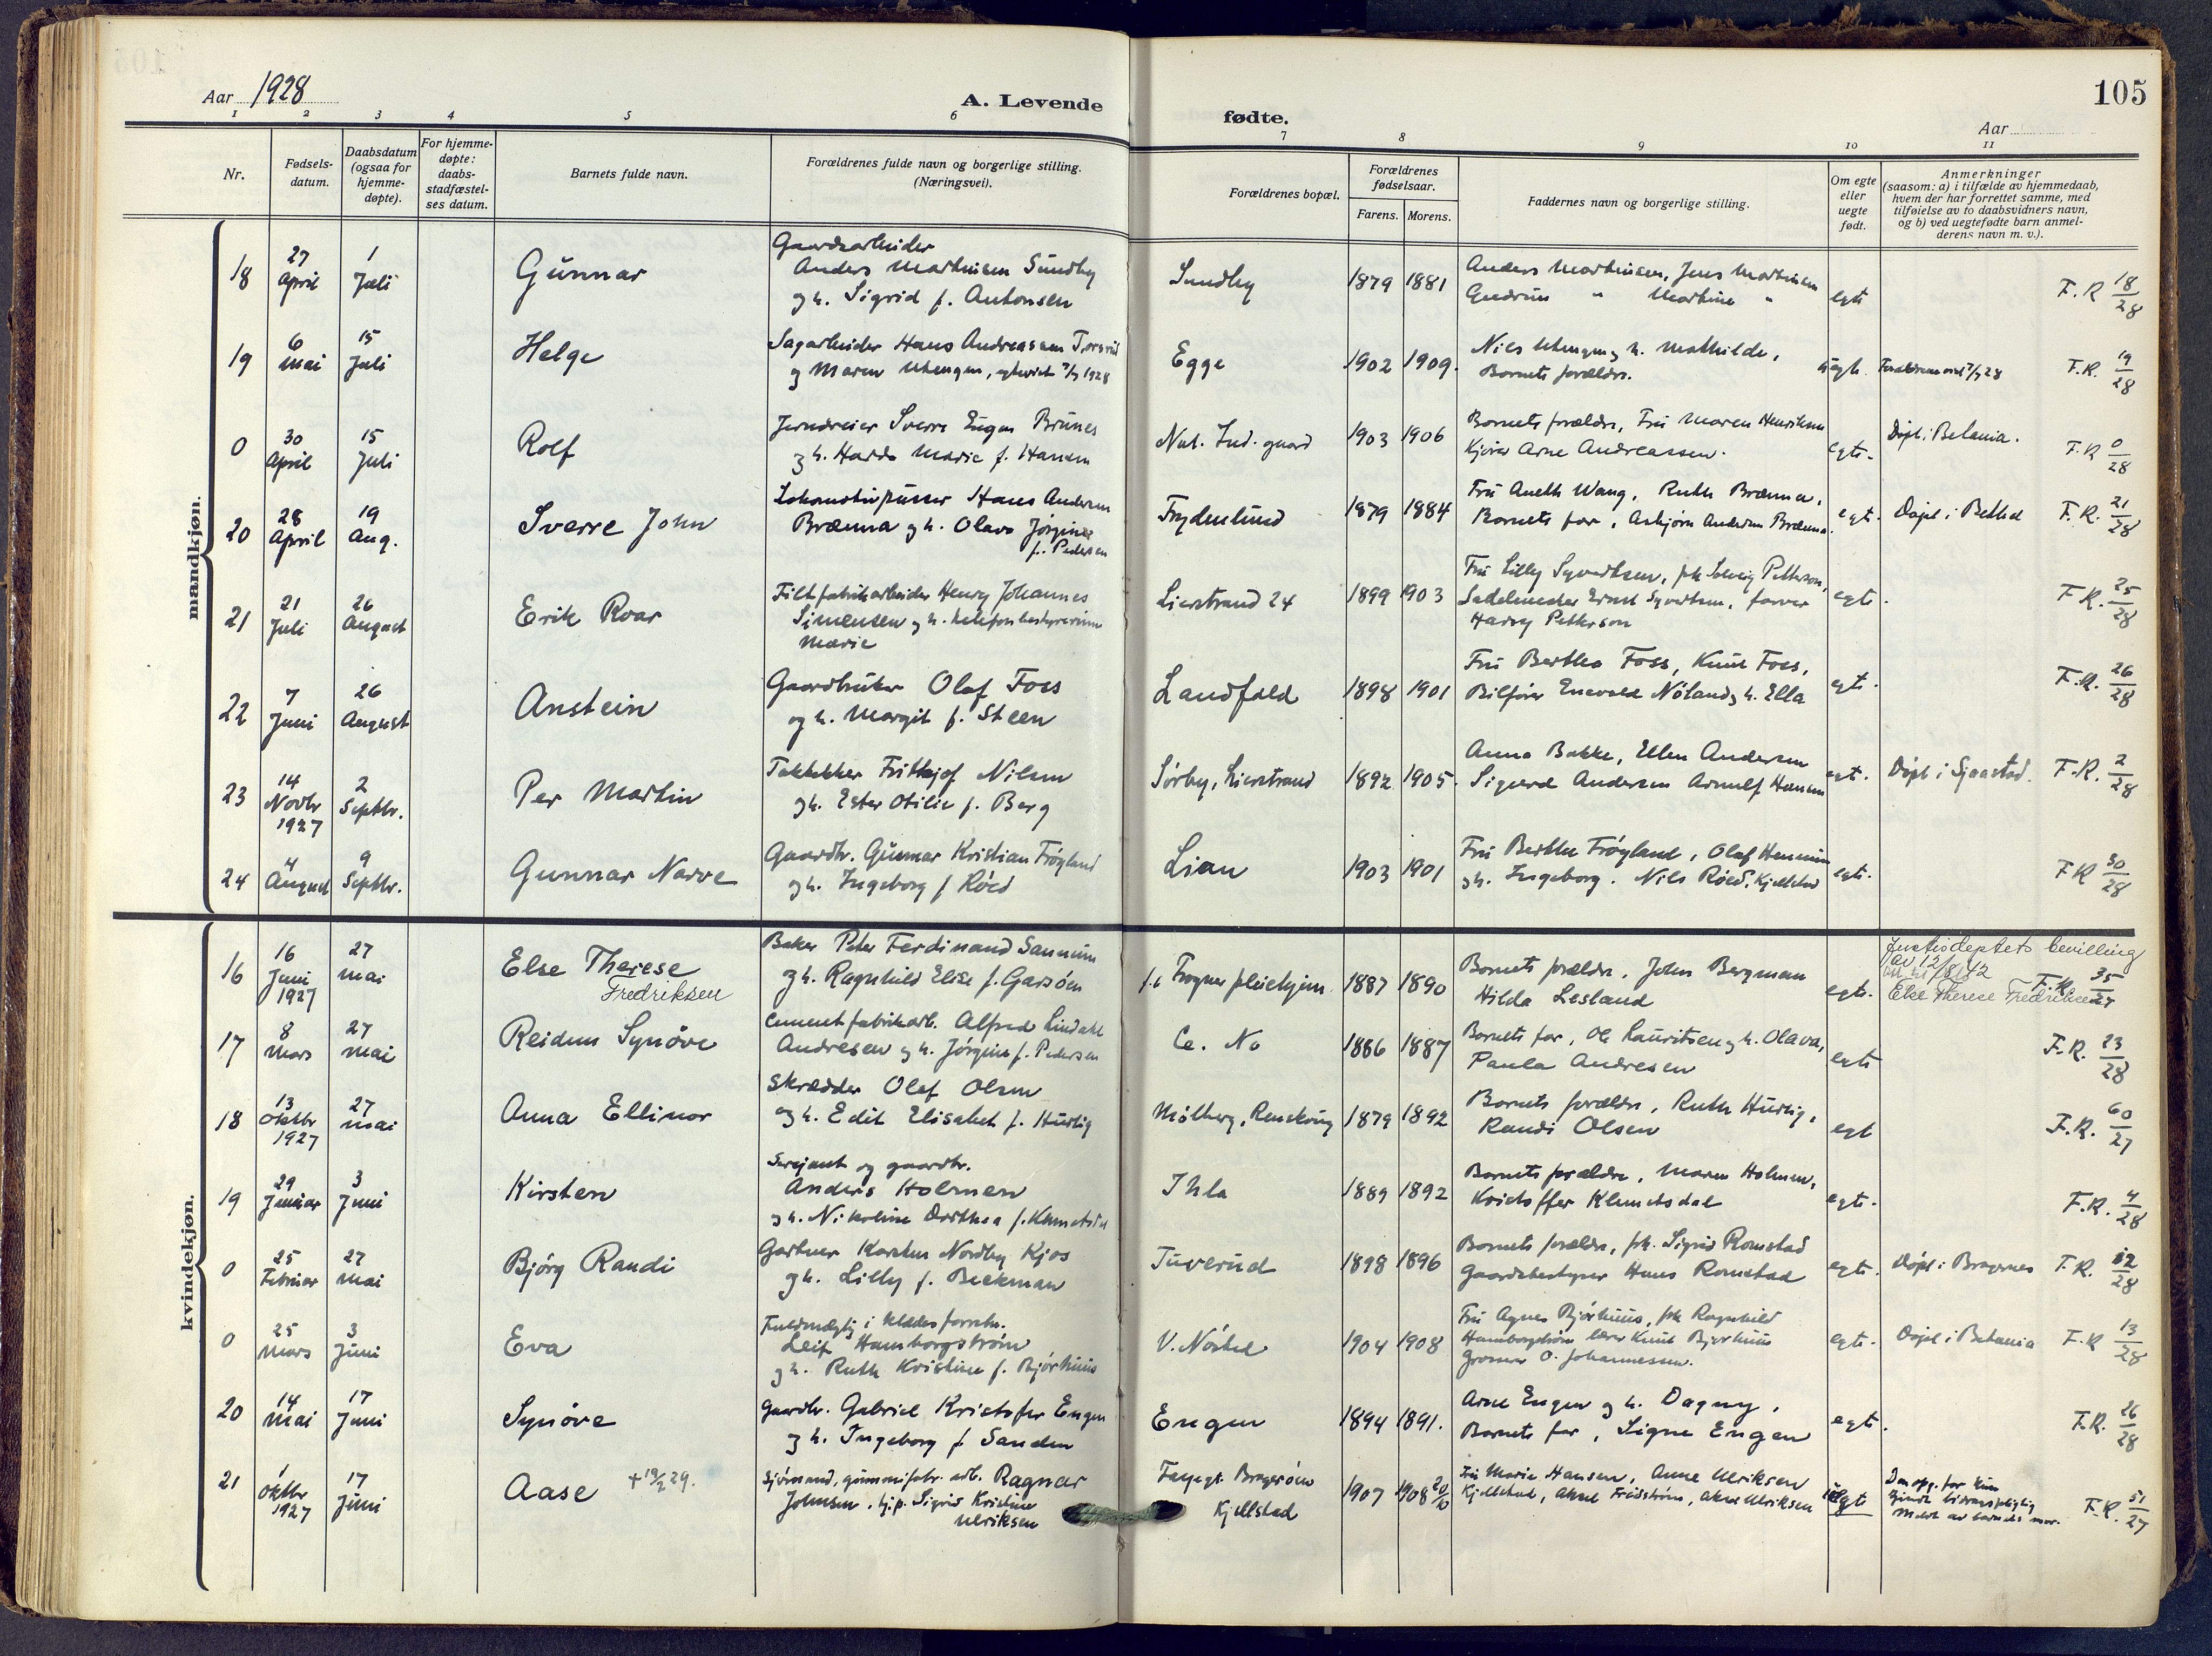 105
Aar 1928
A. Levende
fødte.
Aar
1 2 3 4 5 6 7 8 9 10 11
Nr.
Fødsels-
datum.
Daabsdatum
(ogsaa for
hjemme-
døpte).
For hjemme-
døpte:
daabs-
stadfæstel-
ses datum.
Barnets fulde navn.
Forældrenes fulde navn og borgerlige stilling.
(Næringsvei).
Forældrenes bopæl.
Forældrenes
fødselsaar.
Farens. Morens.
Faddernes navn og borgerlige stilling.
Om egte
eller
uegte
født.
Anmerkninger
(saasom: a) i tilfælde av hjemmedaab,
hvem der har forrettet samme, med
tilføielse av to daabsvidners navn,
og b) ved uegtefødte barn anmel-
derens navn m. v.).
mandkjøn.
18
27
April
1
Juli
Gunnar
Gaardsarbeider
Anders Martinsen Sundby
og h. Sigrid f. Antonsen
Sundby
1879 1881
Anders Martinsen, Jens Martinsen
Gudrun " Martine "
egte
F.R 18/28
19
6
Mai
15
Juli
Helge
Sagarbeider Hans Andreassen
og Maren
Egge
1902 1909.
Nils og h. Mathilde,
Barnets forældre.
uegte.
F.R. 19/28
0
30
April
15
Juli
Rolf
Jerndreier Sverre Eugen Brunes
og h. Marie f. Hansen
Nat. Ind. gaard
1903 1906
Barnets forældre, Fru Maren Henriksen
Kjører Arne Andreassen.
egte.
Døpt i Betania.
F.R 0/28
20
28
April
19
Aug.
Sverre John
Lokomotivpusser Hans Andersen
Brænna og h. Olava Jørgine
f. Pedersen
Frydenlund
1879 1884
Fru Aneth Wang, Ruth Brænna,
Barnets far, Asbjørn Andersen Brænna.
egt.
Døpt i Bethel
F.R. 21/28
21
21
Juli
26
August
Erik Roar
Filtfabrikarbeider Henry Johannes
Simensen og h. telefonbestyrerinne
Marie
Lierstrand 24
1899 1903
Fru Lilly Syvertsen, frk Solveig Petterson,
Sadelmester Ernst Syvertsen, farver
Harry Petterson
egte.
F.R. 25/28
22
7
Juni
26
August
Anstein
Gaardbruker Olaf Foss
og h. Margit f. Steen
Landfald
1898 1901
Fru Bertha Foss, Knut Foss,
Bilfører Enevald Nøland og h. Ella
egte.
F.R. 26/28
23
14
Novbr
1927
2
Septbr.
Per Martin
Taktekker Frithjof Nilsen
og h. Ester Otilie f. Berg
Sørby, Lierstrand
1892 1905.
Anna Bakke, Ellen Andersen
Sigurd Andersen Arnulf Hansen
egt.
Døpt i Sjaastad.
F.R. 2/28
24
4
August
9
Septbr.
Gunnar Narve
Gaardbr. Gunnar Kristian Frøyland
og h. Ingeborg f Røed
Lian
1903 1901
Fru Berthe Frøyland, Olaf
og h. Ingeborg. Nils Røed, Kjellstad
egte.
F.R 30/28
kvindekjøn.
16
16
Juni
1927
27
Mai
Else Therese
Fredriksen
Baker Peter Ferdinand Sannum
og h. Ragnhild Elise f.
Frogner pleiehjem.
1887 1890
Barnets forældre, John Bergman
Hilda Lesland
egte.
Justisdeptets bevilling
av 12/8/42
Else Therese Fredriksen
F.R. 35/27
17
8
Mars
27
Mai
Reidun Synøve
Cementfabrikarb. Alfred Lindahl
Andresen og h. Jørgine f. Pedersen
Ce. No
1886 1887
Barnets far, Ole Lauritsen og h. Olava,
Paula Andresen
egte
F.R. 23/28
18
13
Oktbr
1927
27
Mai
Anna Ellinor
Skrædder Olaf Olsen
og h. Edit Elisabet f. Hurtig
Mølberg,
1879 1892
Barnets forældre, Ruth Hurtig,
Randi Olsen
egt
F.R. 60/27
19
29
Januar
3
Juni
Kirsten
Serjant og gaardbr.
Anders Holmen
og h. Nikoline Dorthea f. Klemetsdal
Ihla
1889 1892
Barnets forældre, Maren Holmen,
Kristoffer Klemetsdal
egte.
F.R. 4/28
0
25
Februar
27
Mai
Bjørg Randi
Gartner Karsten Nordby Kjos
og h. Lilly f. Beckman
Tuverud
1898 1896
Barnets forældre, frk. Sigrid Romstad
Gaardsbestyrer Hans Romstad
egte.
Døpt i Bragernes
F.R. 12/28
0
25
Mars
3
Juni
Eva
Fuldmægtig i klædesforretn.
Leif Hamborgstrøm
og h. Ruth Kristine f. Bjørhuus
V. Nøsted
1904 1908
Fru Agnes Bjørhuus, frk Ragnhild
Hamborgstrøm lærer Knut Bjørhuus
Grosserer O. Johannessen.
egte.
Døpt i Betania
F.R 13/28
20
14
Mai
17
Juni
Synøve
Gaardbr. Gabriel Kristofer Engen
og h. Ingeborg f Sanden
Engen
1894 1891.
Arne Engen og h. Dagny,
Barnets far, Signe Engen
egt.
F.R. 26/28
21
1
Oktbr
1927
17
Juni
Aase +19/2 29.
Sjømand, gummifabr. arb. Ragnar
Johnsen, hjp. Sigrid Kristine
Ulriksen
Bragerøen
Kjellstad
1907 1908 20/10
Fru Marie Hansen, Anne Ulriksen
Kjellstad, Aksel Fridstrøm, Aksel Ulriksen
uegte
Den opg. far kun
kjendt bidragspligtig
Meldt av barnets mor.
F.R. 51/27